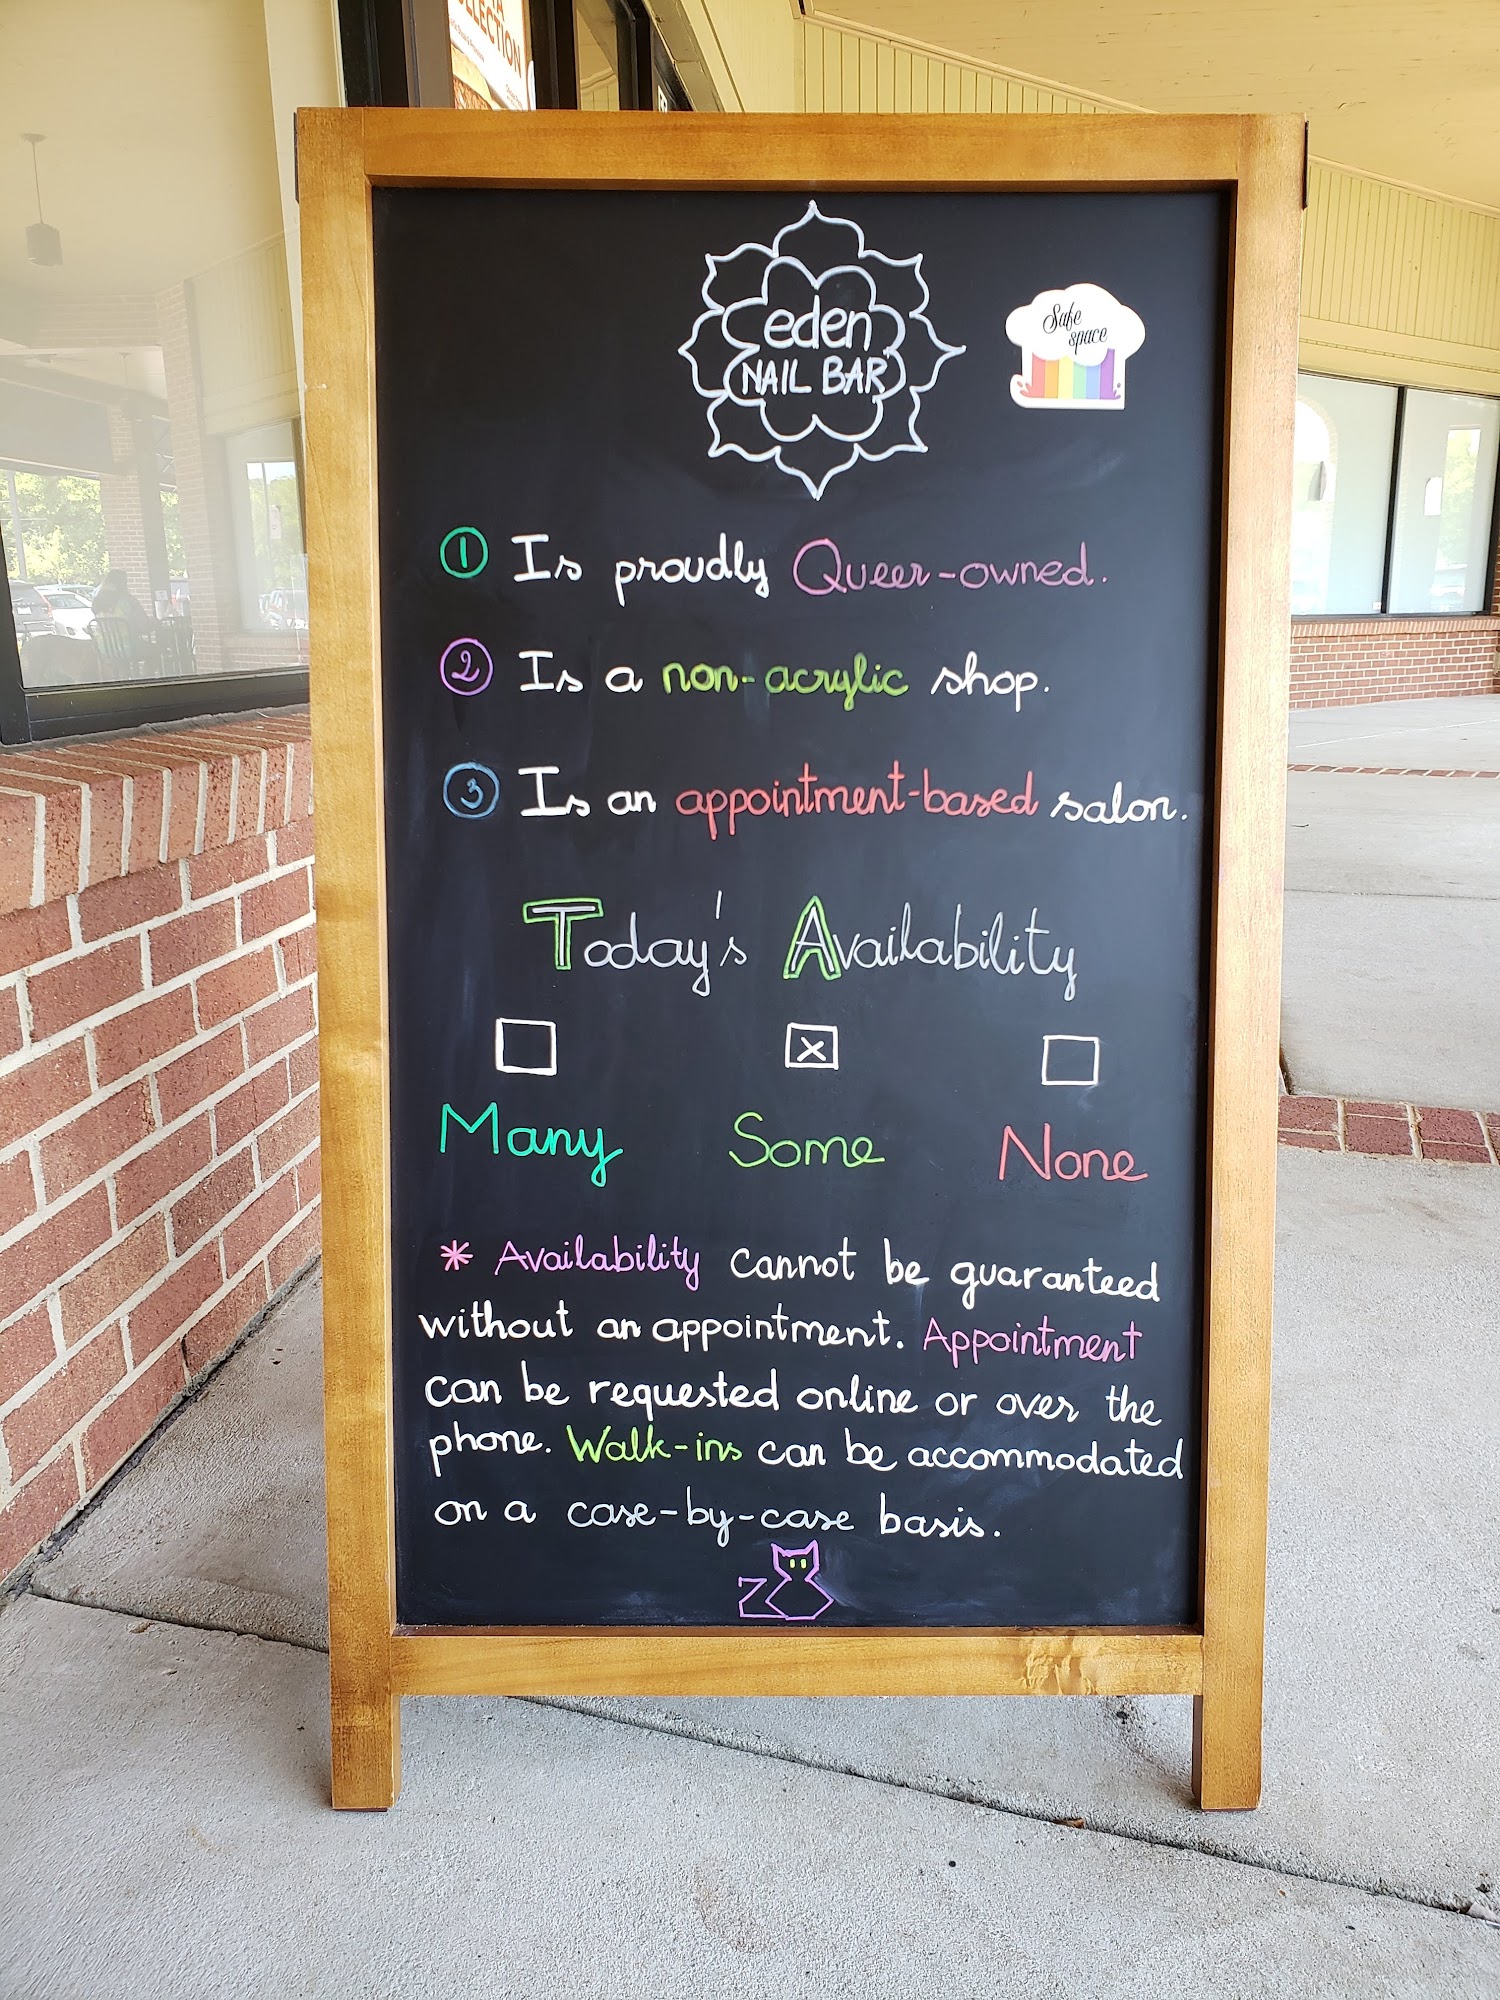 ELECTION
eden
NAIL BAR
Safe
space
1 Is proudly Queer-owned.
2 Is a non-acrylic shop.
3 Is an appointment-based salon.
Today's Availability
x
Many Some None
* Availability cannot be guaranteed
without an appointment. Appointment
can be requested online or over the
phone. Walk-ins can be accommodated
on a case-by-case basis.